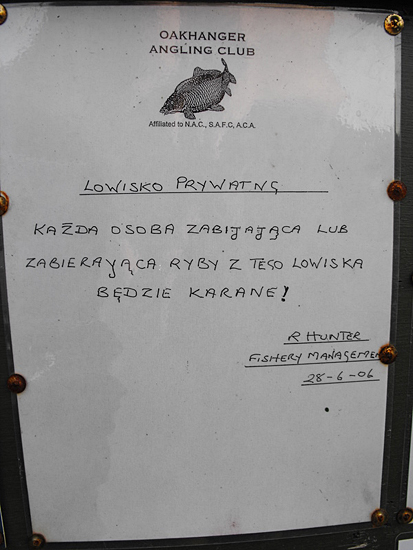 OAKHANGER
ANGLING CLUB
Affiliated to N.A.C., S.A.F.C, A.C.A.
LOWISKO PRYWATNĘ
KAŻDA OSOBA ZABIJAJĄCA LUB
ZABIERAYĄCA RYBY Z TEGO LOWISKA
BĘDZIE KARANE!
R HUNTER
FISHERY MANAGEME
28-6-06